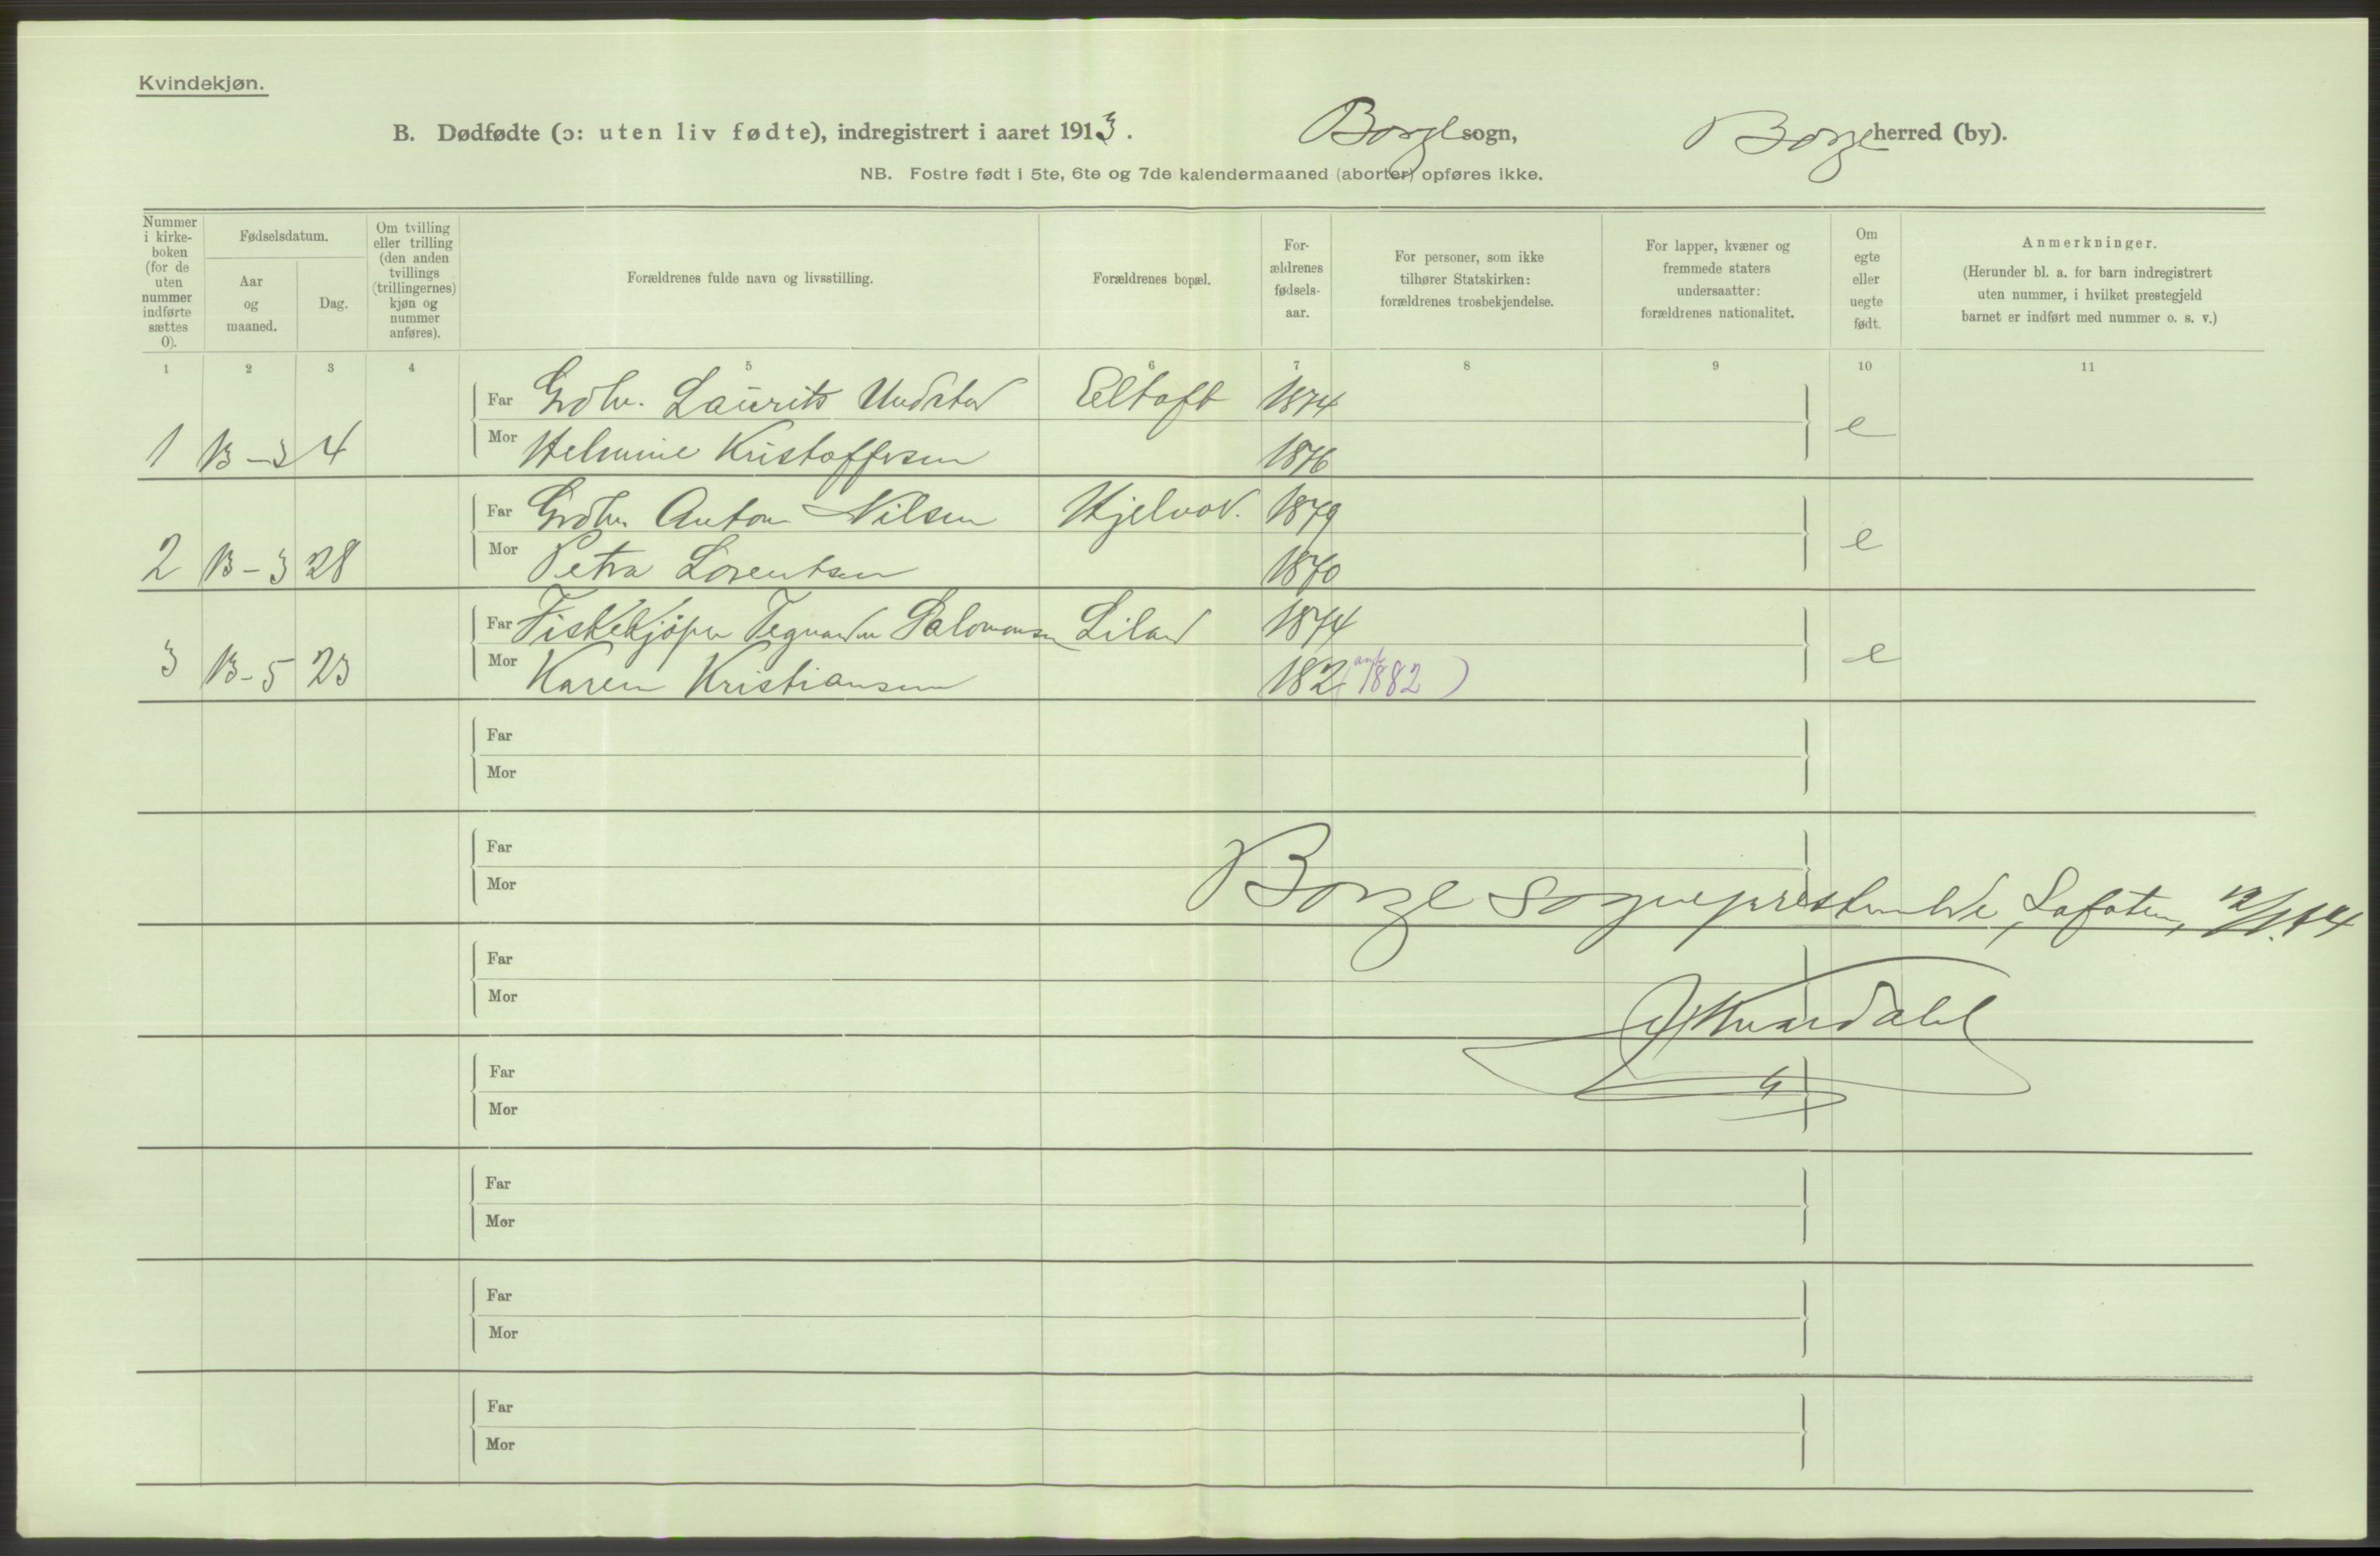 Kvindekjøn.
B. Dødfødte (ɔ: uten liv fødte), indregistrert i aaret 1913. Borge sogn, Borge herred (by).
NB. Fostre født i 5te, 6te og 7de kalendermaaned (aborter) opføres ikke.
Nummer i kirke-boken (for de uten nummer indførte sættes 0).
Fødselsdatum.
Aar og maaned.
Dag.
Om tvilling eller trilling (den anden tvillings (trillingernes) kjøn og nummer anføres).
Forældrenes fulde navn og livsstilling.
Forældrenes bopæl.
For-ældrenes fødsels-aar.
For personer, som ikke tilhører Statskirken: forældrenes trosbekjendelse.
For lapper, kvæner og fremmede staters undersaatter: forældrenes nationalitet.
Om egte eller uegte født.
Anmerkninger.
(Herunder bl. a. for barn indregistrert uten nummer, i hvilket prestegjeld barnet er indført med nummer o. s. v.)
1 2 3 4 5 6 7 8 9 10 11
Far Grdbr. Laurits Undstad Eltoft 1874
1 13-3 4 Mor Helmine Kristoffersen 1876 e
Far Grdbr. Anton Nilsen Hjelvol. 1879
2 13-3 28 Mor Petra Lorentsen 1870 e
Far Fiskekjøper Salomonsen Liland 1874
3 13-5 23 Mor Karen Kristiansen 182 (ant 1882) e
Far
Mor
Far
Mor
Borge sogneprestembede, Lofoten, 12/1.14
Far
Mor
Far
Mor
Far
Mor
Far
Mor
Far
Mor